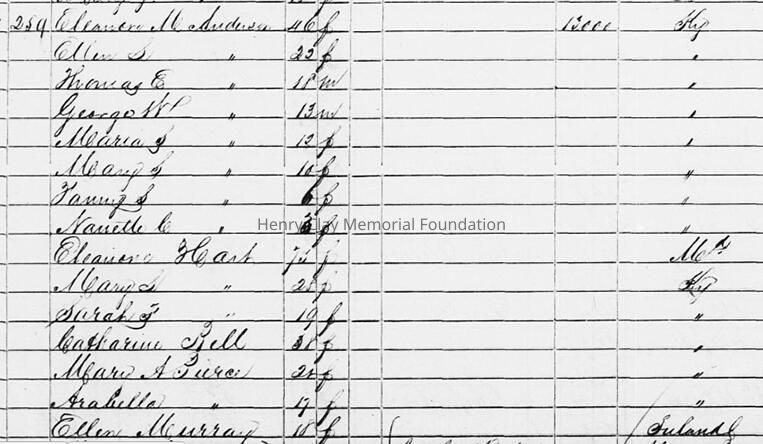 259 Eleanora M Anderson 46 f 13000 Ky
Ellen S " 22 f "
Thomas E " 18 m "
George W " 13 m "
Maria S " 12 f "
Mary S " 10 f "
Fanny S " 6 f "
Nanette C " 3 f "
Henry Clay Memorial Foundation
Eleanora Hart 75 f Md
Mary S " 28 f Ky
Sarah S " 19 f "
Catharine Bell f "
Mary A Pierce f "
Arabella " 17 f "
Ellen Murray 18 f Ireland